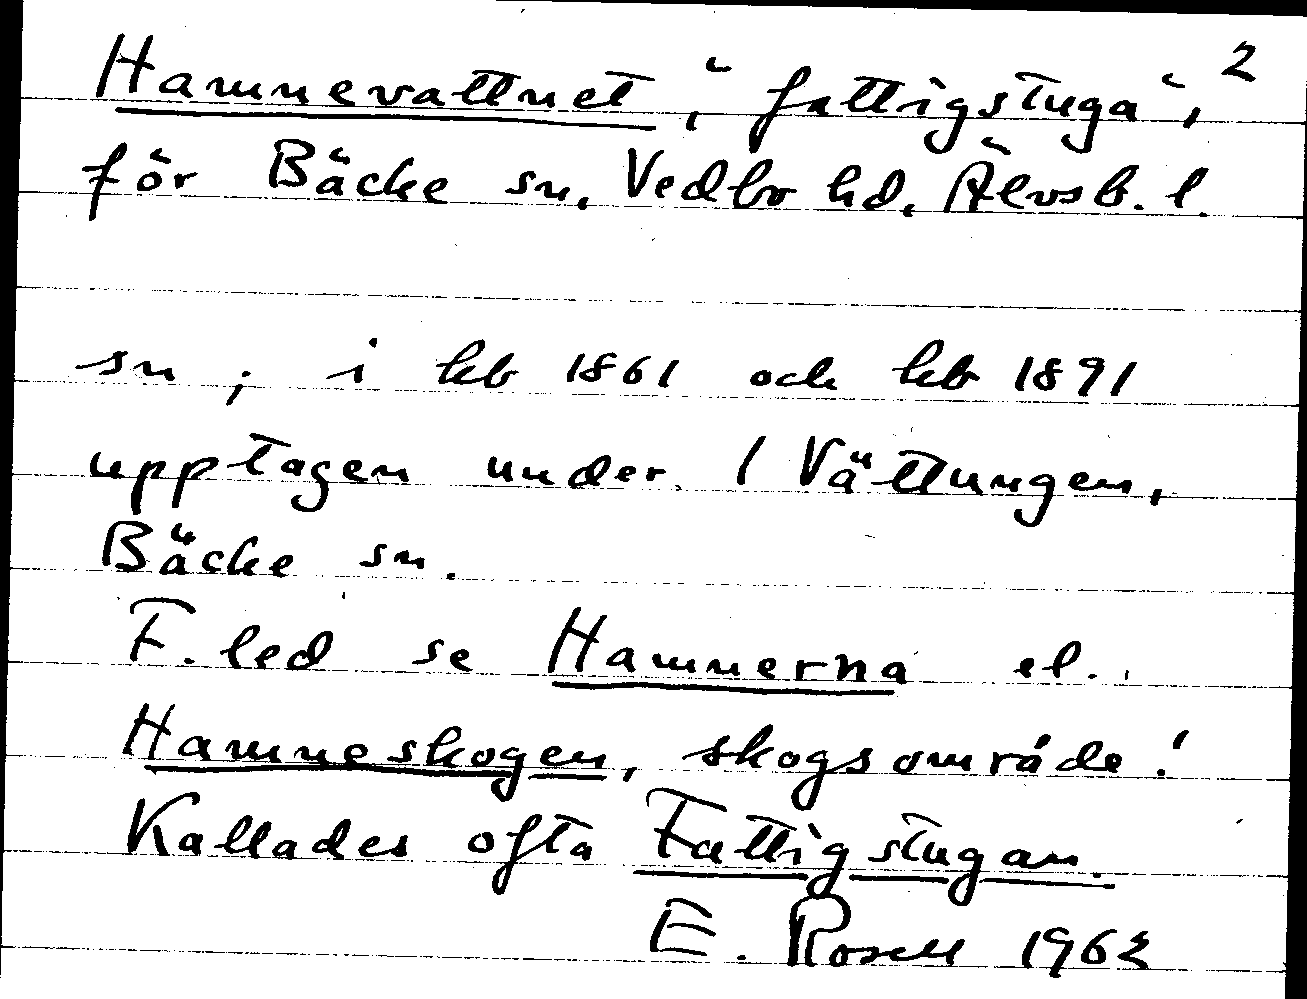 Hamnevattnet, "fattigstuga", 2
för Bäcke sn, Vedbo hd, Älvsb. l.
sn ; i hb 1861 och hb 1891
upptagen under 1 Vättungen,
Bäcke sn.
F. led se Hamnerna el.
Hamneskogen, skogsområde!
Kallades ofta Fattigstugan.
E. Rosell 1962